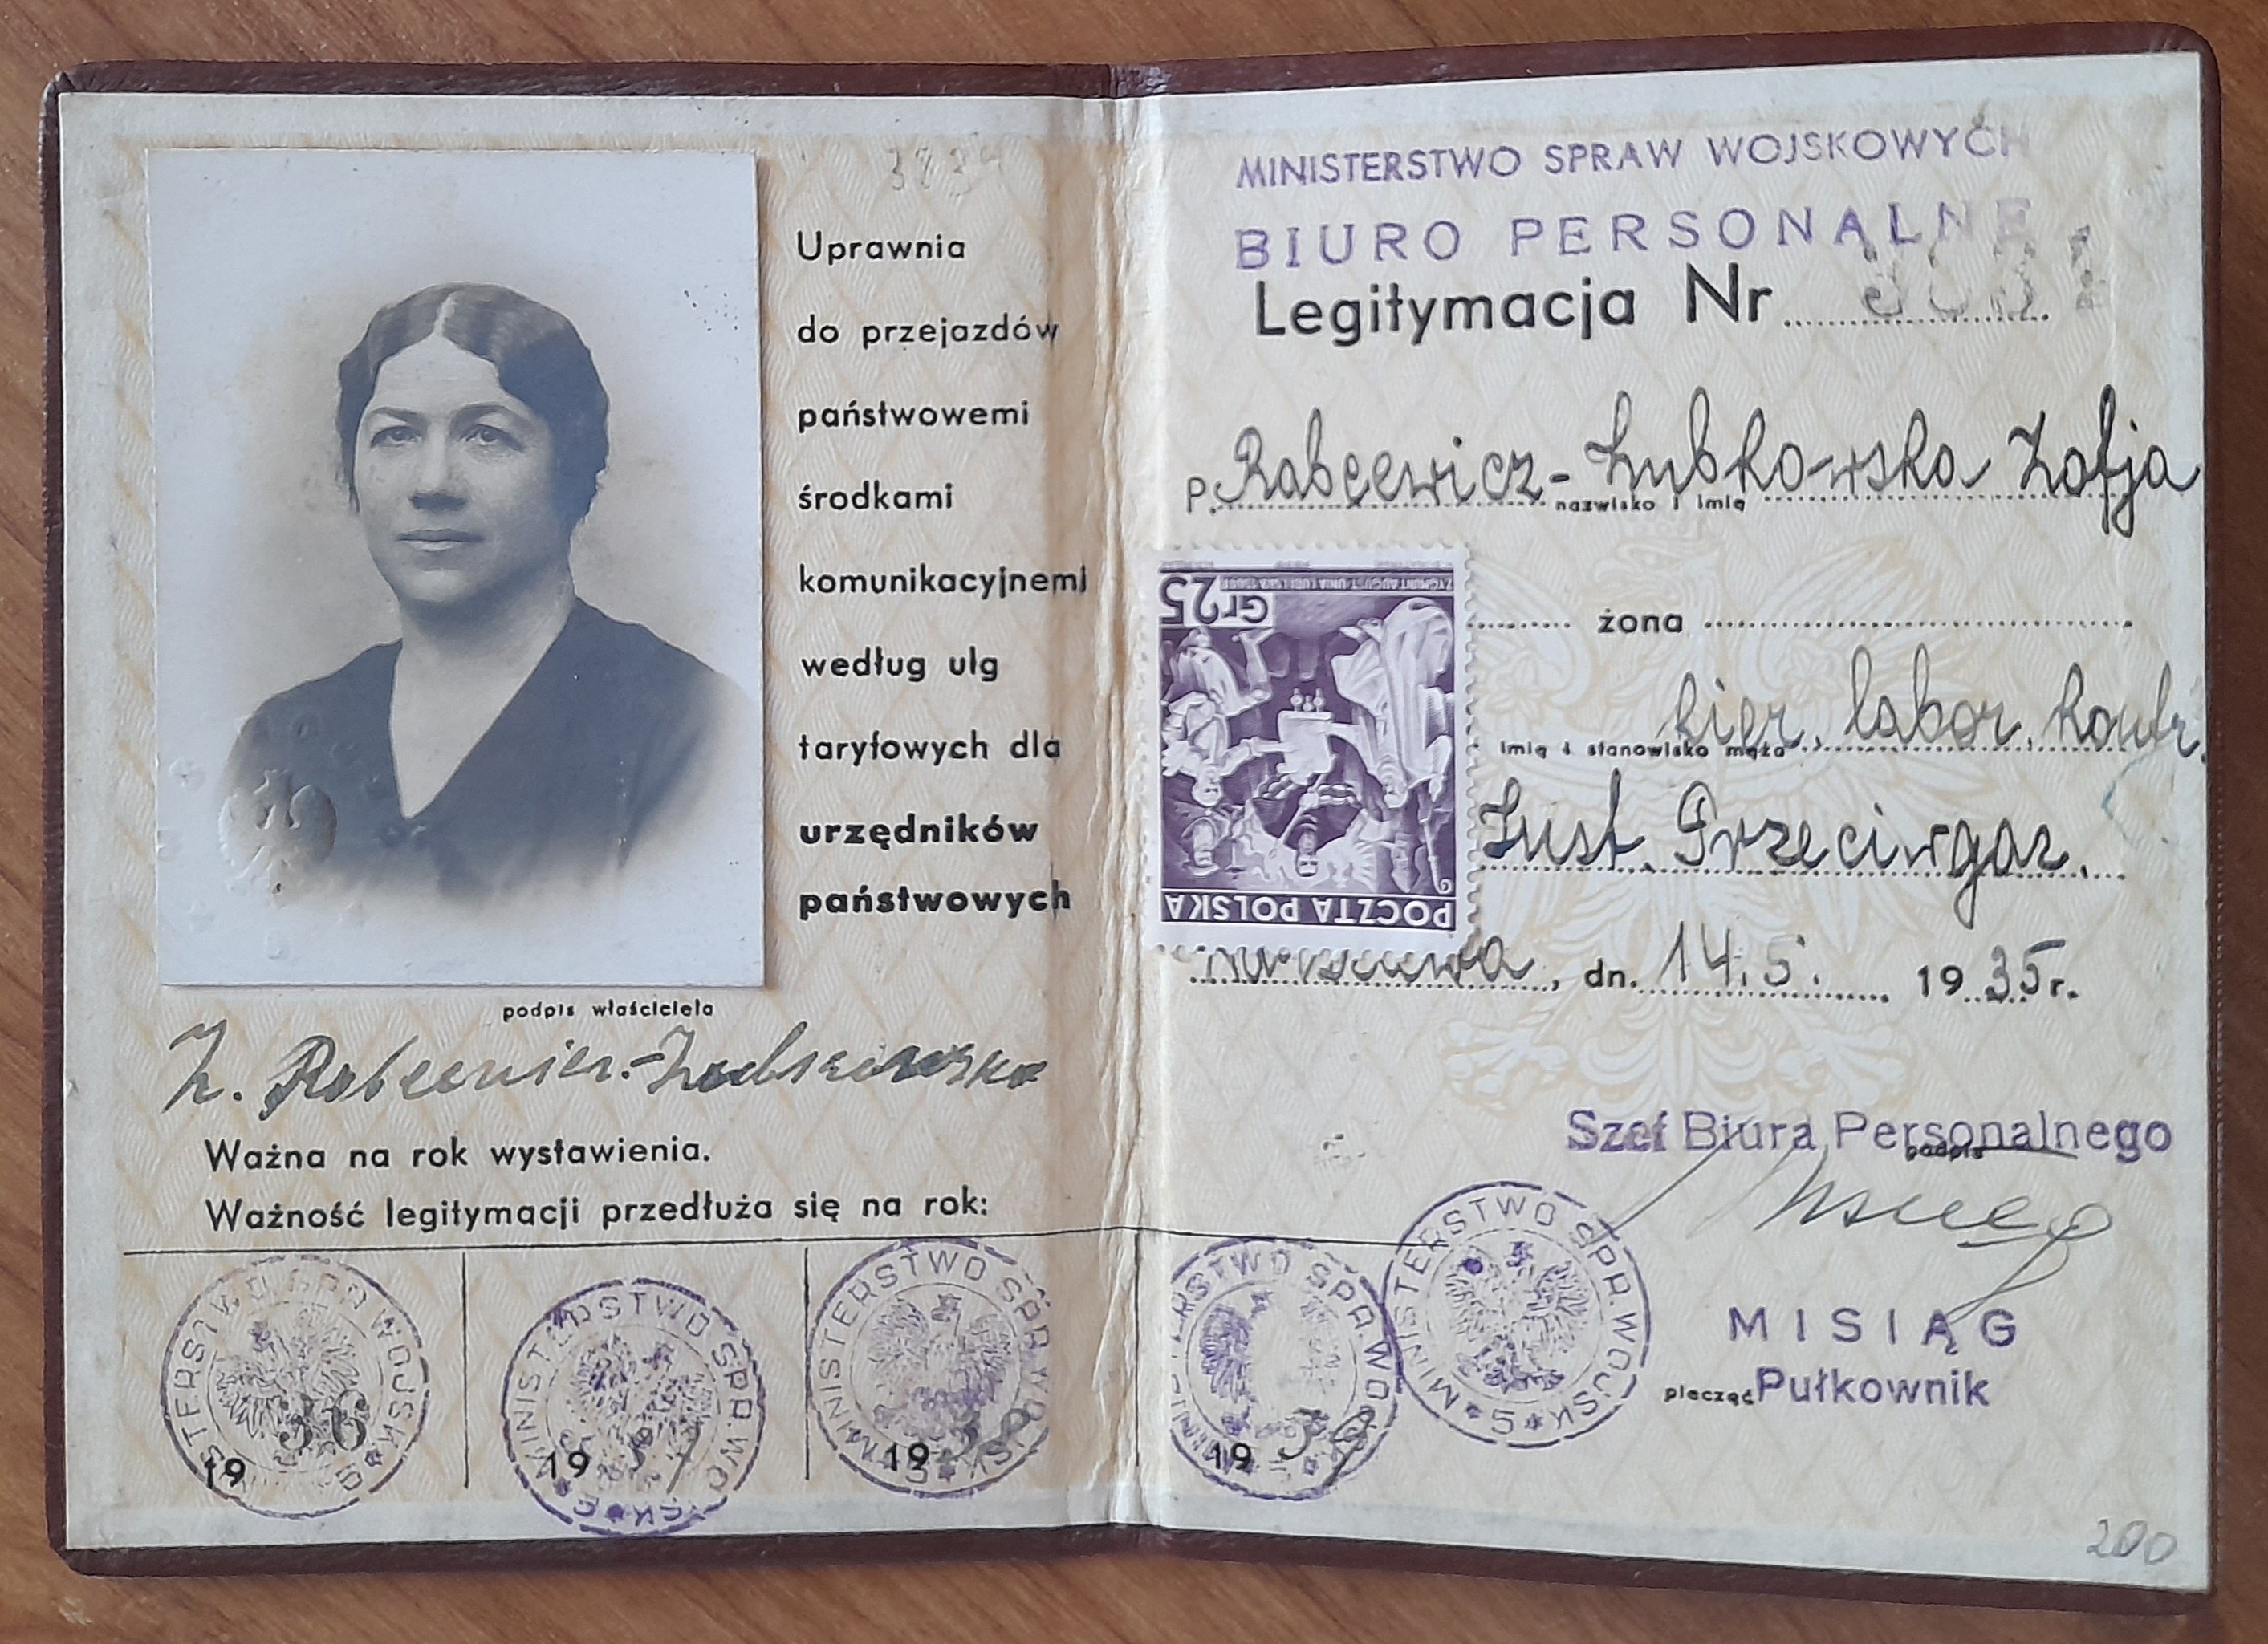 Uprawnia
do przejazdów
państwowemi
środkami
komunikacyjnemi
według ulg
taryfowych dla
urzędników
państwowych
podpis właściciela
Z. Rabcewicz-Zubkowska
Ważna na rok wystawienia.
Ważność legitymacji przedłuża się na rok:
MINISTERSTWO SPRAW WOJSK
19 36
MINISTERSTWO SPR. WOJSK
19 37
MINISTERSTWO SPR. WOJSK
19 38
MINISTERSTWO SPR. WOJSK
19 39
MINISTERSTWO SPRAW WOJSKOWYCH
BIURO PERSONALNE
Legitymacja Nr
p. Rabcewicz-Zubkowska Zofja
nazwisko i imię
żona
kier. labor. kontr.
imię i stanowisko męża
Inst. Przeciwgaz.
Gr 25
ZYGMUNT AUGUST UNIA LUBELSKA 1569
POCZTA POLSKA
Warszawa, dn. 14.5. 1935 r.
Szef Biura Personalnego
podpis
MINISTERSTWO SPR. WOJSK * 5 *
MISIĄG
pieczęć Pułkownik
200